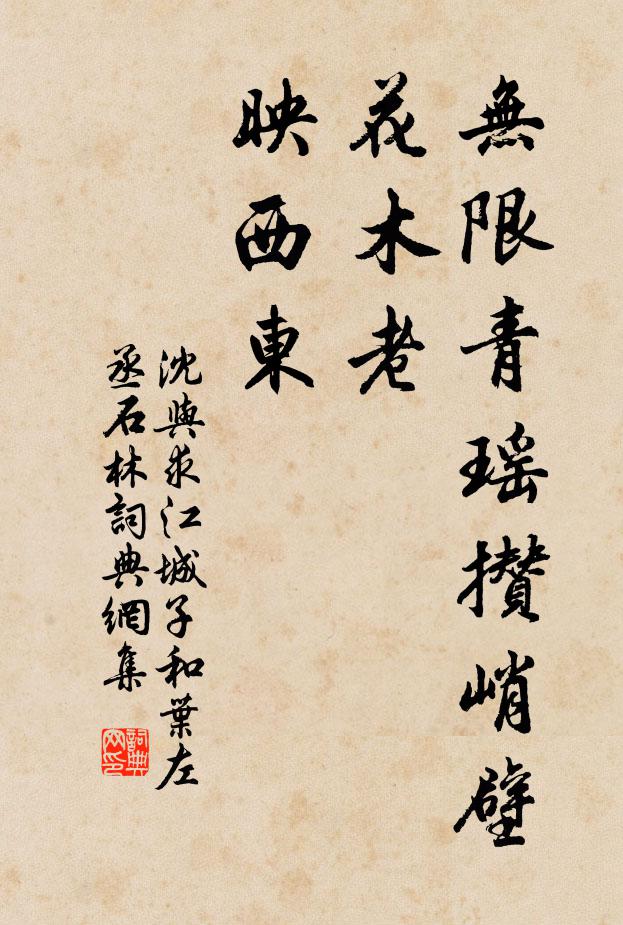 無限青瑤攢峭壁
花木老
映西東
沈與求江城子和葉左
丞石林詞典網集
詞典網印